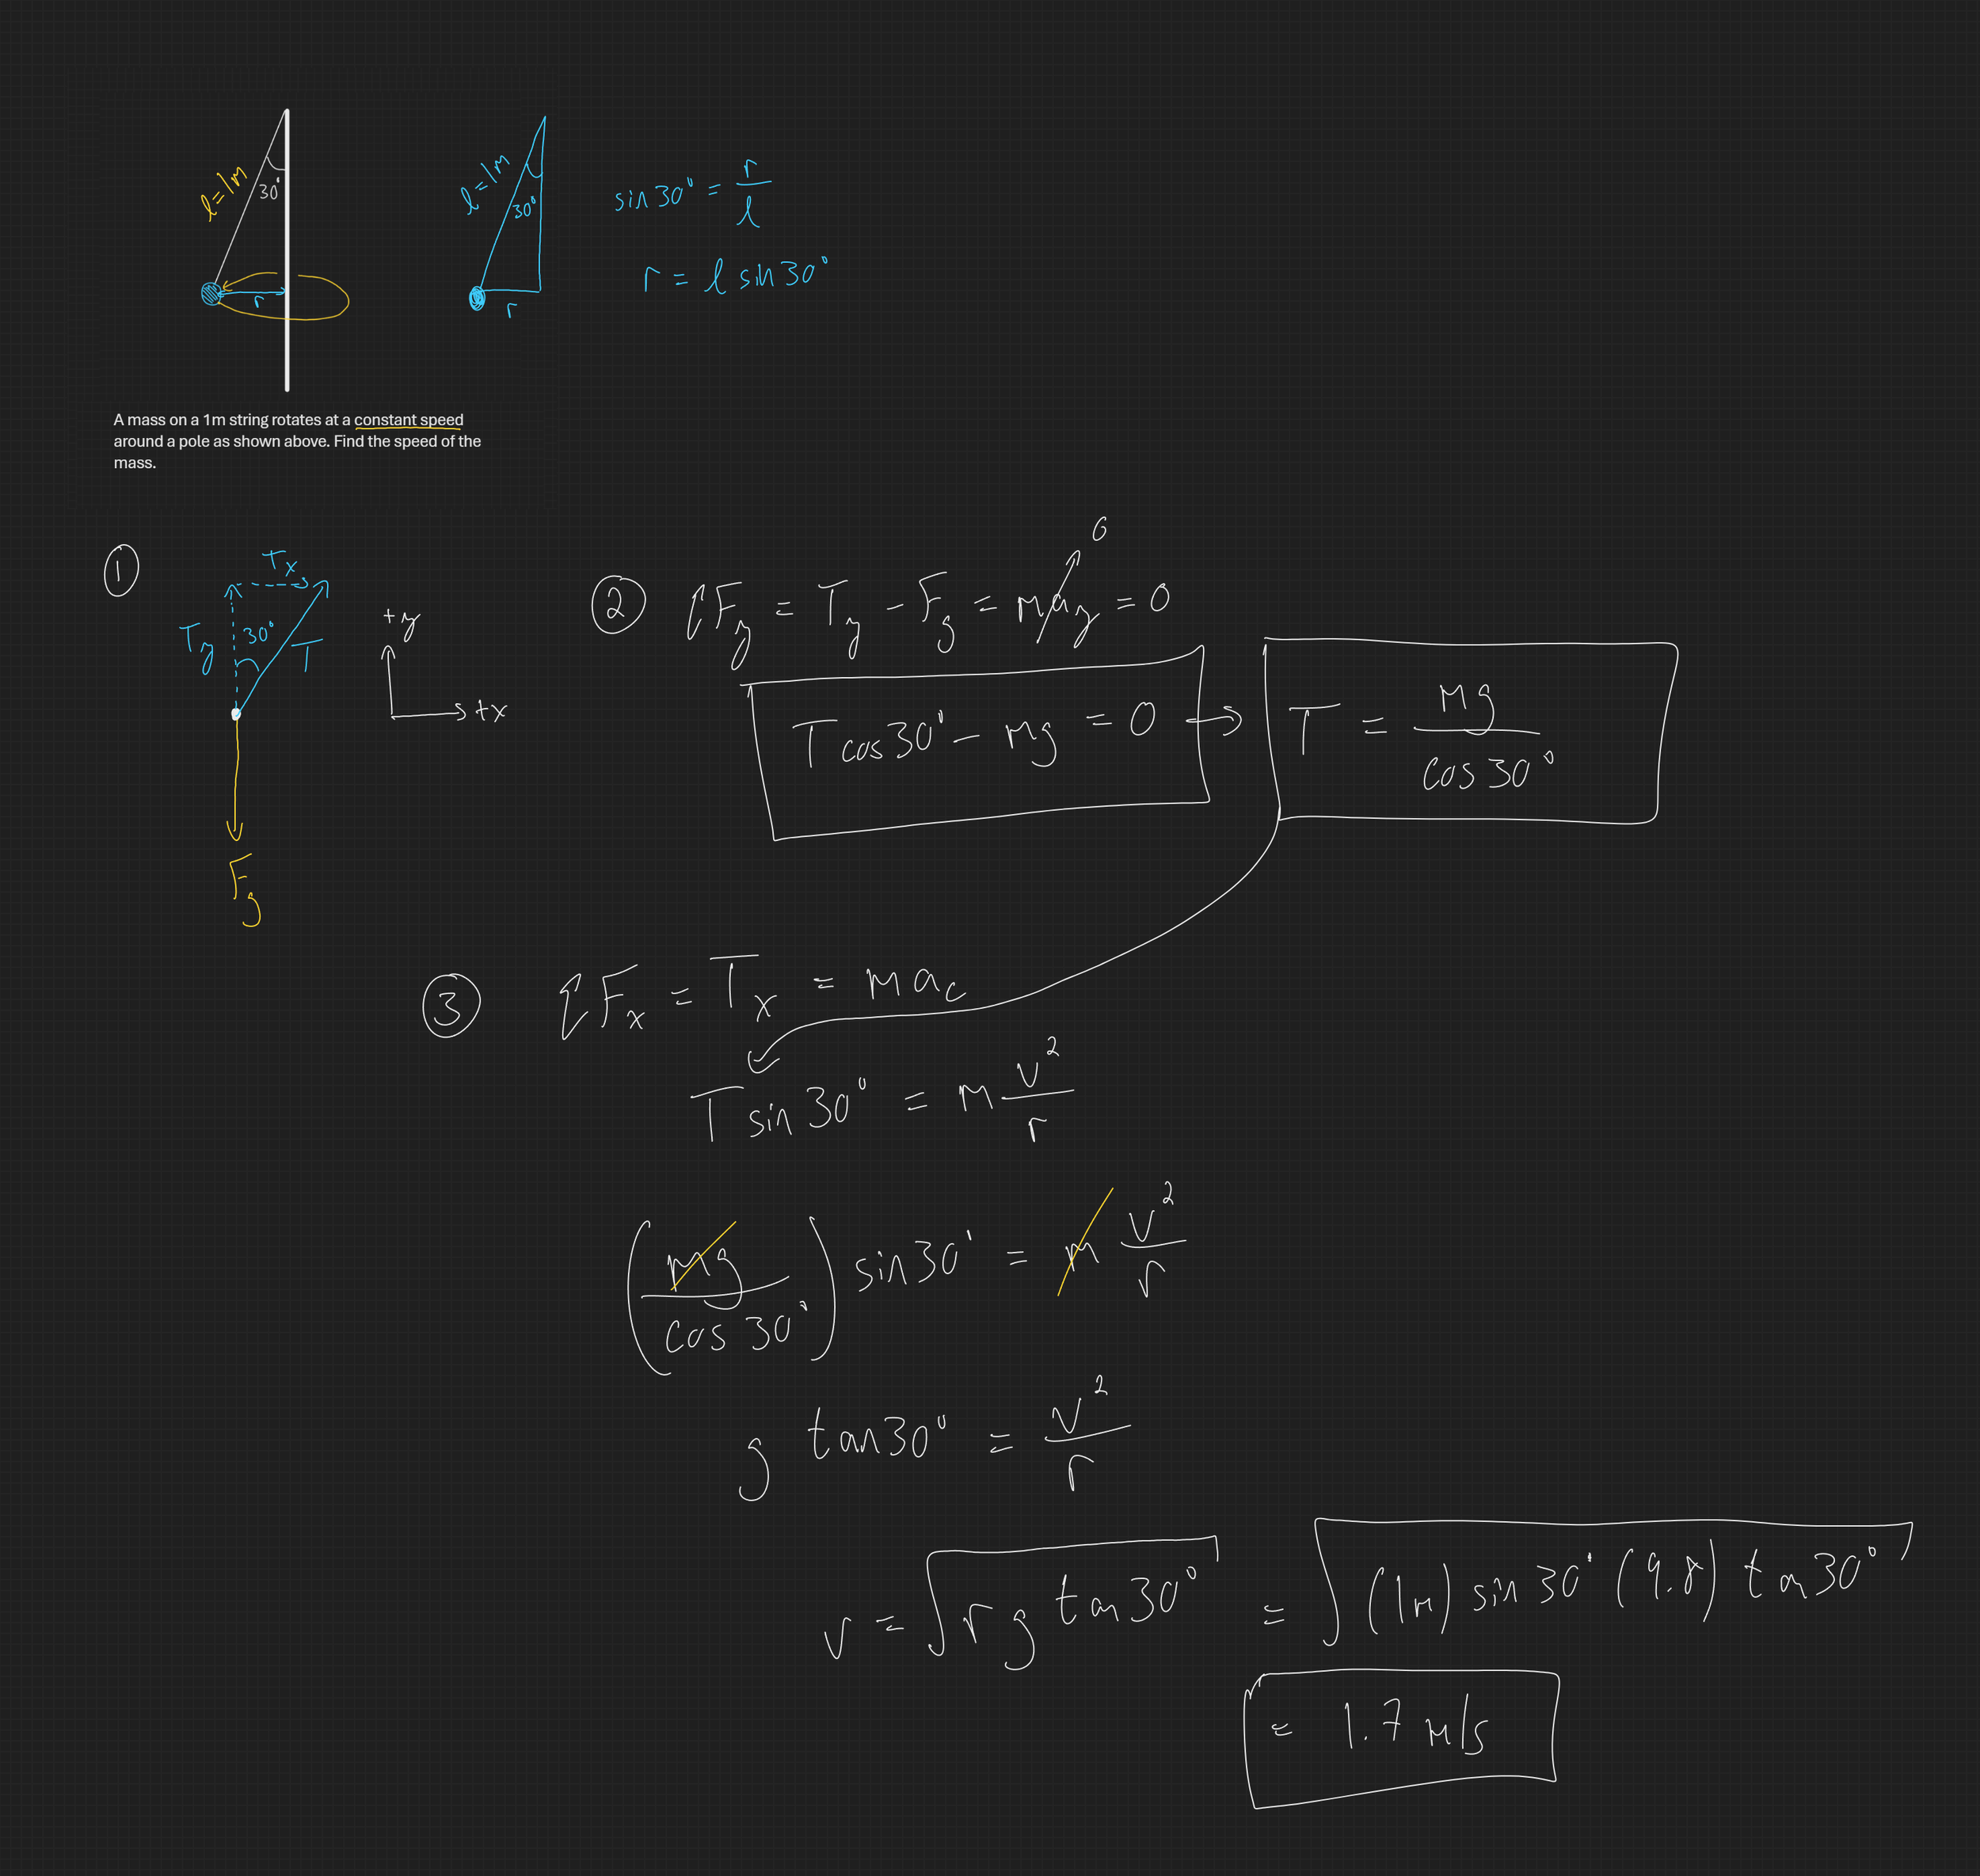 l=1m
30°
r
l=1m
30°
r
sin30° = r/l
r = l sin30°
A mass on a 1m string rotates at a constant speed
around a pole as shown above. Find the speed of the
mass.
①
T_x
T_y
30°
T
F_g
+y
+x
② ΣF_y = T_y - F_g = ma_y = 0
0
Tcos30° - mg = 0 → T = mg/cos30°
③ ΣF_x = T_x = ma_c
T sin30° = m v²/r
(mg/cos30°) sin30° = m v²/r
g tan30° = v²/r
v = √(rg tan30°) = √((1m) sin30° (9.8) tan30°)
= 1.7 m/s